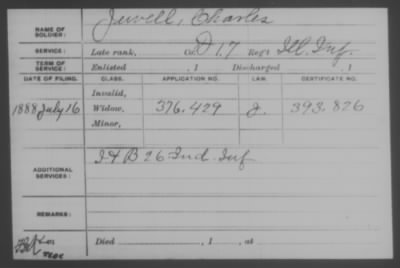 NAME OF SOLDIER: Jewell, Charles
SERVICE: Late rank, Co. D 17 Reg't Ill. Inf.
TERM OF SERVICE: Enlisted , 1 Discharged , 1
DATE OF FILING. CLASS. APPLICATION NO. LAW. CERTIFICATE NO.
Invalid,
1888 July 16 Widow, 376.429 J. 393.826
Minor,
ADDITIONAL SERVICES: I & B 26 Ind. Inf
REMARKS:
Died , 1 , at